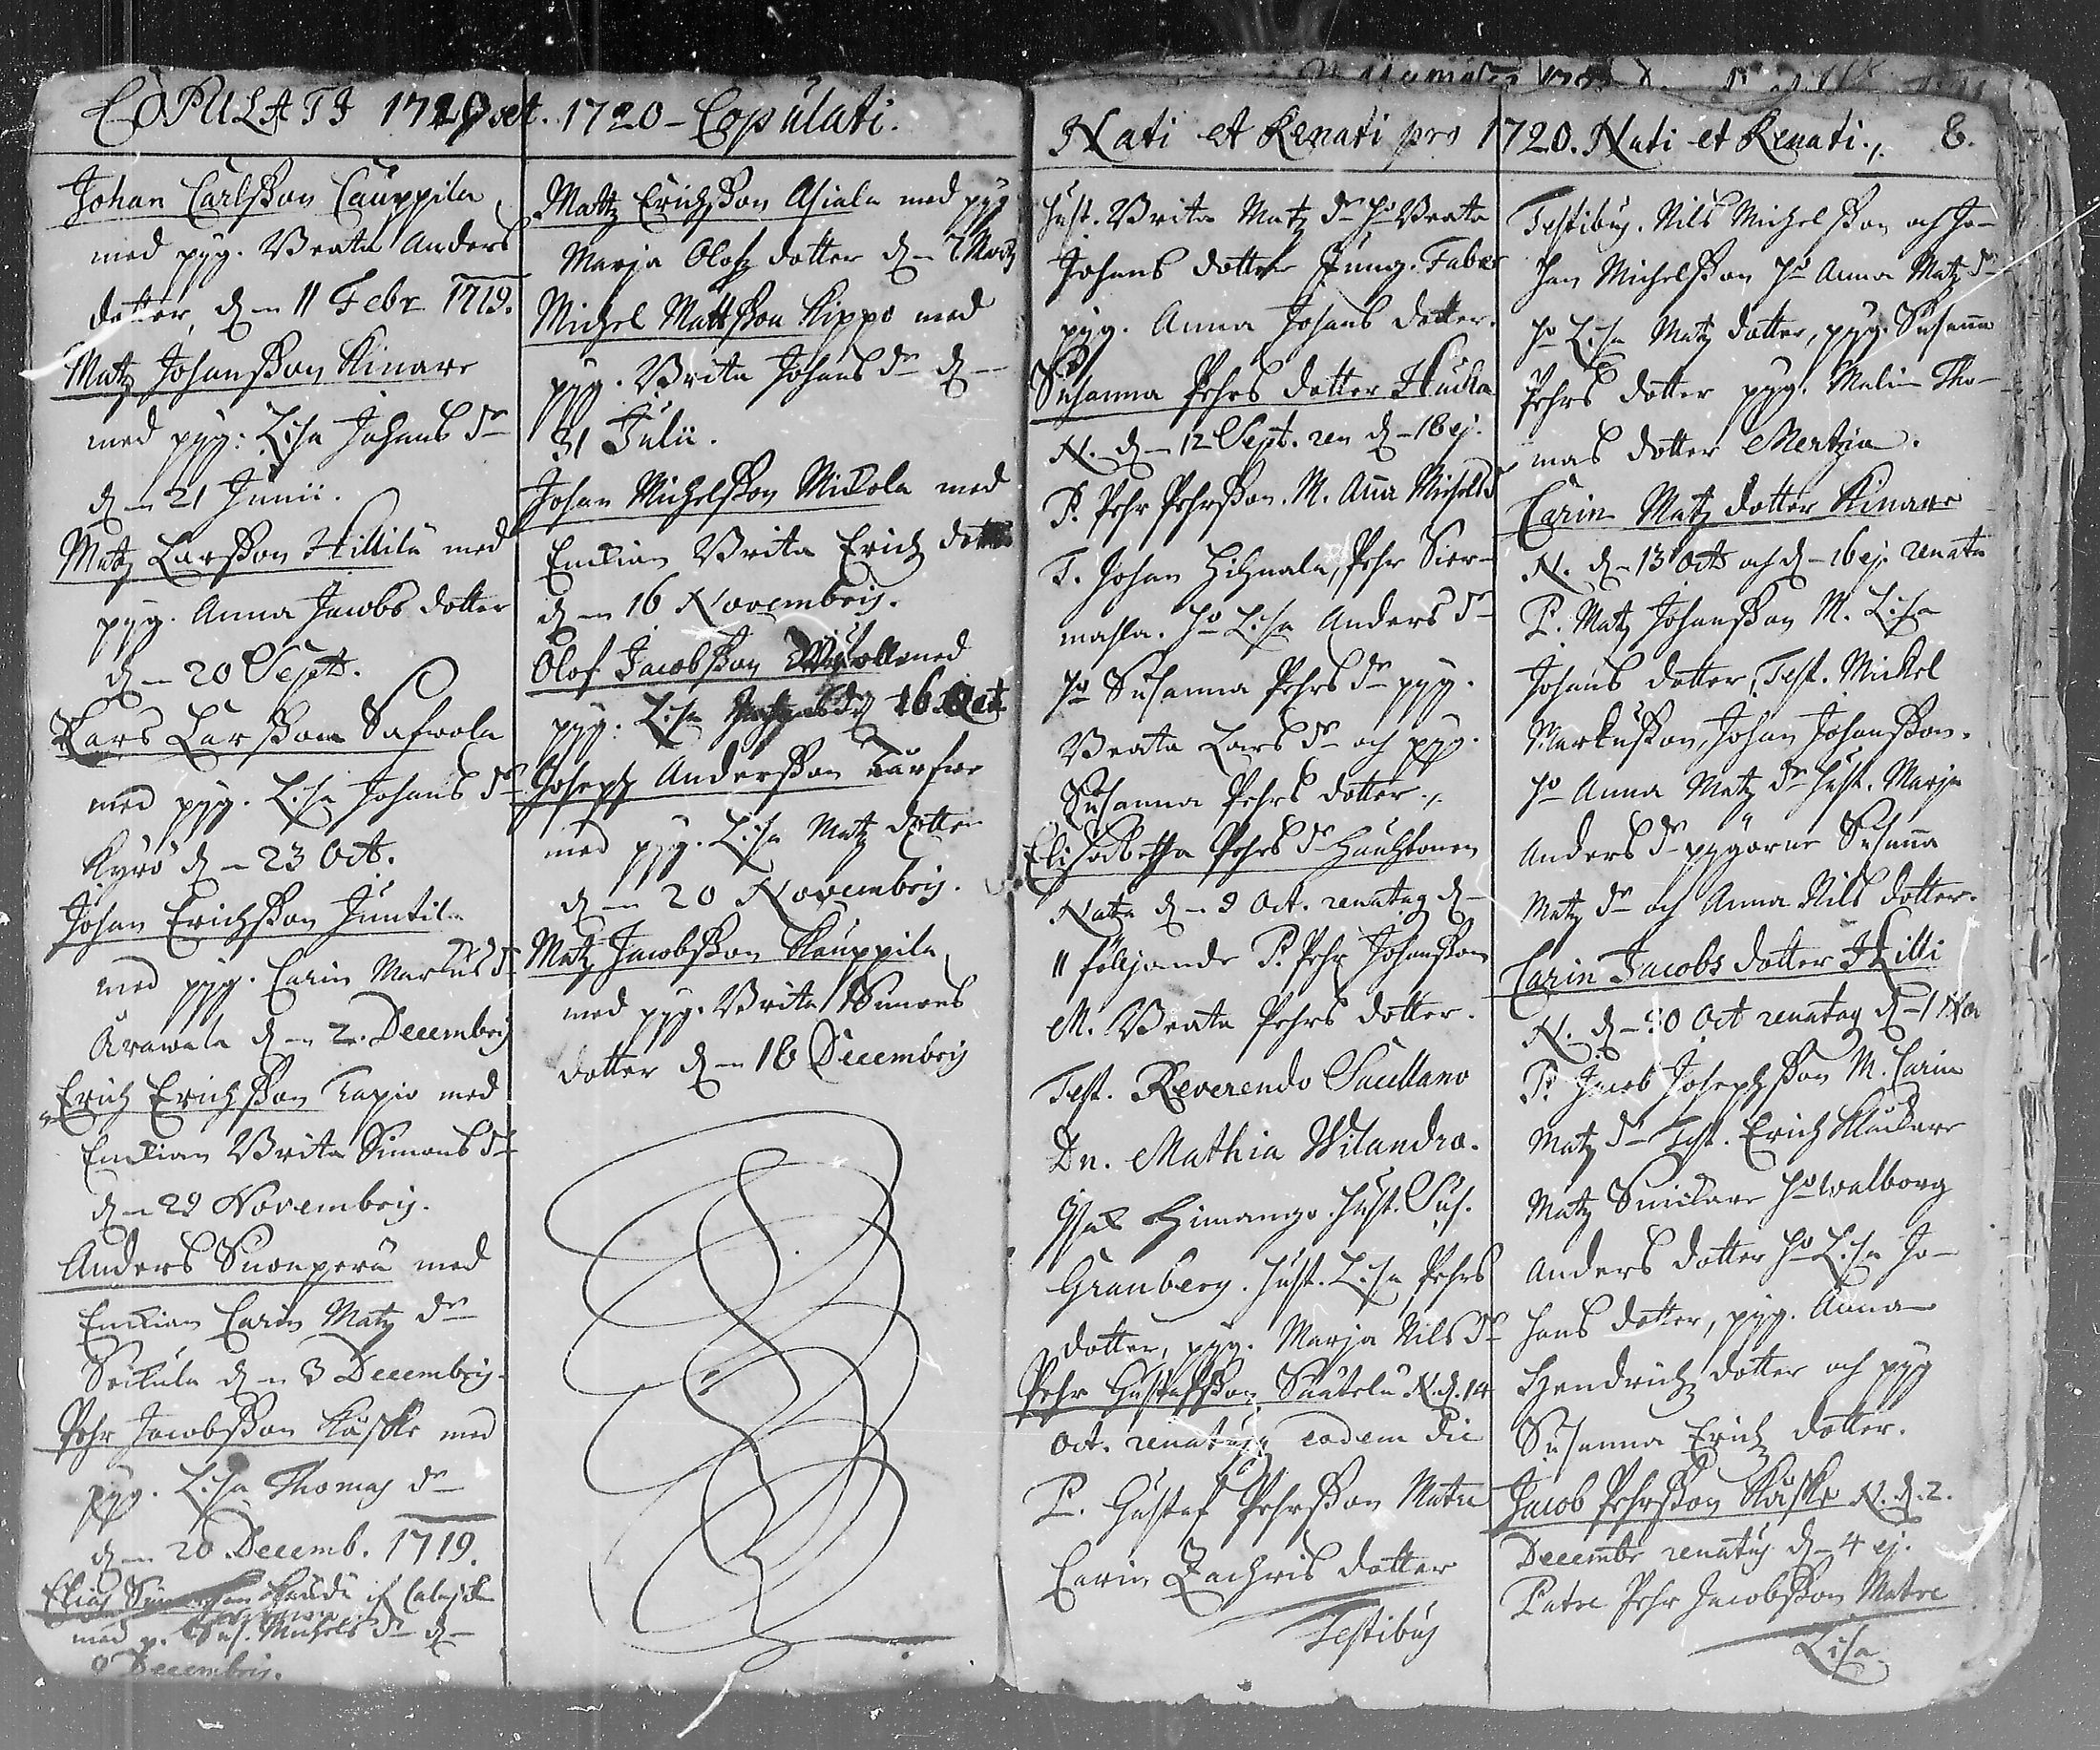 COPULATI 1719 et
Johan Carlsson Cauppila
med pyg. Breata Anders
dotter, d-n 11 Febr 1719.
Matz Johansson Kinare
med pyg: Lisa Johans dr
d-n 21 Junii.
Matz Larsson Hillilä med
pyg. Anna Jacobs dotter
d-n 20 Sept.
Lars Larsson Safwola
med pyg. Lisa Johans dr
Kyro d-n 23 Oct.
Johan Erichsson Juntila
med pyg. Carin Markus dr
d-n 2. Decembris
Erich Erichsson Tapio med
Enkian Brita Simons dr
d-n 29 Novembris.
Anders Suonperä med
Enkian Carin Matz dr
Seikula d-n 3 Decembris.
Pehr Jacobsson Kåske med
pyg. Lisa Thomas dr
d-n 20 Decemb. 1719.
Elias
med p. Sus. Michels dr d-
9 Decembris.
1720 - Copulati.
Mattz Erichsson Asiala med pyg
Marja Olofz dotter d-n 7 Martz
Michel Mattsson Kippo med
pyg. Brita Johans dr d-
31 Julii.
Johan Michelsson Mikola med
Enkian Brita Erichz dotter
d-n 16 Novembris.
Olof Jacobsson med
pyg. Lisa 16 Oct.
Joseph Andersson Turfwe
med pyg. Lisa Matz dotter
d-n 20 Novembris.
Matz Jacobsson Kauppila
med pyg. Brita Simons
dotter d-n 18 Decembris
Nati et Renati pro 1720.
Hust. Brita Matz dr Ho Breata
Johans dotter Jung. Faber
pyg. Anna Johans dotter.
Susanna Pehrs dotter Hucka
N. d-n 12 Sept. ren d-18 ej.
P. Pehr Pehrsson. M. Aña Michels dr
T. Johan Hihnala, Pehr Sier-
masla. Ho Lisa Anders dr
Ho Susanna Pehrs dr pyg.
Breata Lars dr och pyg.
Susanna Pehrs dotter.
Elisabetha Pehrs dr Hauhtonen
Nata d-n 9 Oct. renatag d-
11 följande P. Pehr Johansson
M. Breata Pehrs dotter.
Test. Reverendo Sacellano
Dn. Mathia Wilandro.
Isak Himango. Hust. Sus.
Granberg. Hust. Lisa Pehrs
dotter, pyg. Marja Nils dr
Pehr Gustafsson Sautela N. d. 14
Oct. renatus eadem die
P. Gustaf Pehrsson Matre
Carin Zachris dotter
Testibus
Nati et Renati. 8.
Testibus. Nils Michelsson och Jo-
han Michelsson Ho Anna Matz dr
Ho Lisa Matz dotter, pyg. Susanna
Pehrs dotter pyg. Malin Tho-
mas dotter Mertzia.
Carin Matz dotter Kinare
N. d-13 Oct och d-16 ej. renata
P. Matz Johansson M. Lisa
Johans dotter, Test. Mickel
Markusson, Johan Johansson.
Ho Anna Matz dr Hust. Marja
Anders dr pygorne Susaña
Matz dr och Anna Nils dotter.
Carin Jacobs dotter Hilli
N. d-30 Oct renatag d-1 Nov
P. Jacob Josephsson M. Carin
Matz dr Test. Erich Kluckare
Matz Snickare Ho Walborg
Anders dotter Ho Lisa Jo-
hans dotter, pyg. Anna
Hendrichz dotter och pyg
Susanna Erichz dotter.
Jacob Pehrsson Kåske N. d. 2.
Decembr renatus d-4 ej.
Patre Pehr Jacobsson Matre
Lisa